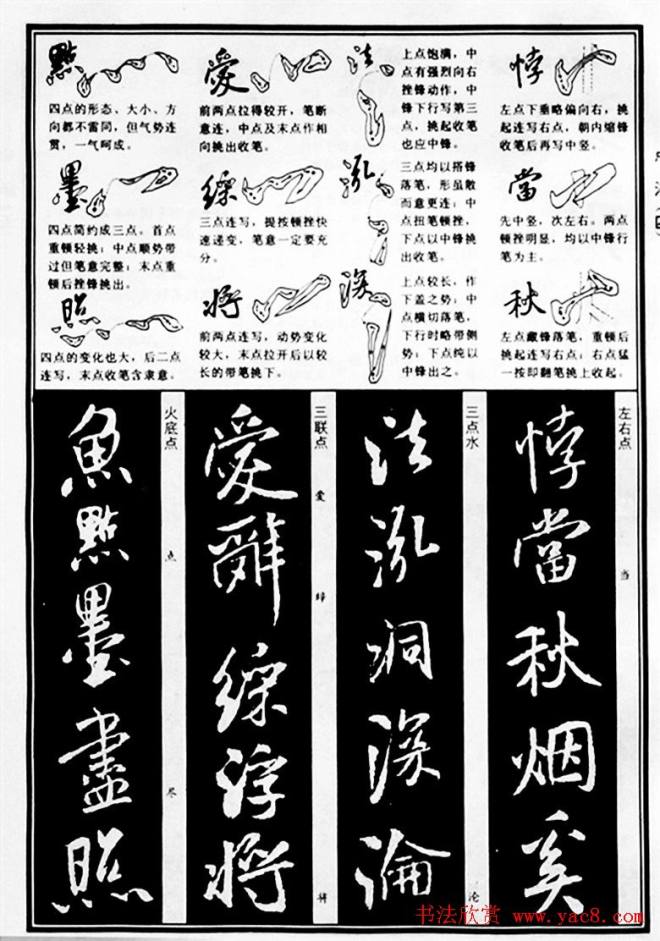 悖
左点下垂略偏向右，挑
起连写右点，朝内缩锋
收笔后再写中竖。
當
先中竖，次左右。两点
顿挫明显，均以中锋行
笔为主。
秋
左点藏锋落笔，重顿后
挑起连写右点；右点猛
一按即翻笔挑上收起。
法
上点饱满，中
点有强烈向右
挫锋动作，中
锋下行写第三
点，挑起收笔
也应中锋。
泓
三点均以搭锋
落笔，形虽散
而意更连；中
点扭笔顿挫，
下点以中锋挑
出收笔。
深
上点较长，作
下盖之势；中
点横切落笔，
下行时略带侧
势；下点纯以
中锋出之。
愛
前两点拉得较开，笔断
意连，中点及末点作相
向挑出收笔。
綜
三点连写，提按顿挫快
速递变，笔意一定要充
分。
將
前两点连写，动势变化
较大，末点拉开后以较
长的带笔挑下。
點
四点的形态、大小、方
向都不雷同，但气势连
贯，一气呵成。
墨
四点简约成三点。首点
重顿轻挑；中点顺势带
过但笔意完整；末点重
顿后挫锋挑出。
照
四点的变化也大，后二点
连写，末点收笔含隶意。
左右点
当
悖當秋烟奚
三点水
沦
法泓洞深淪
三联点
爱
将
愛綜浮將
火底点
点
尽
魚點墨盡照
书法欣赏 www.yac8.com